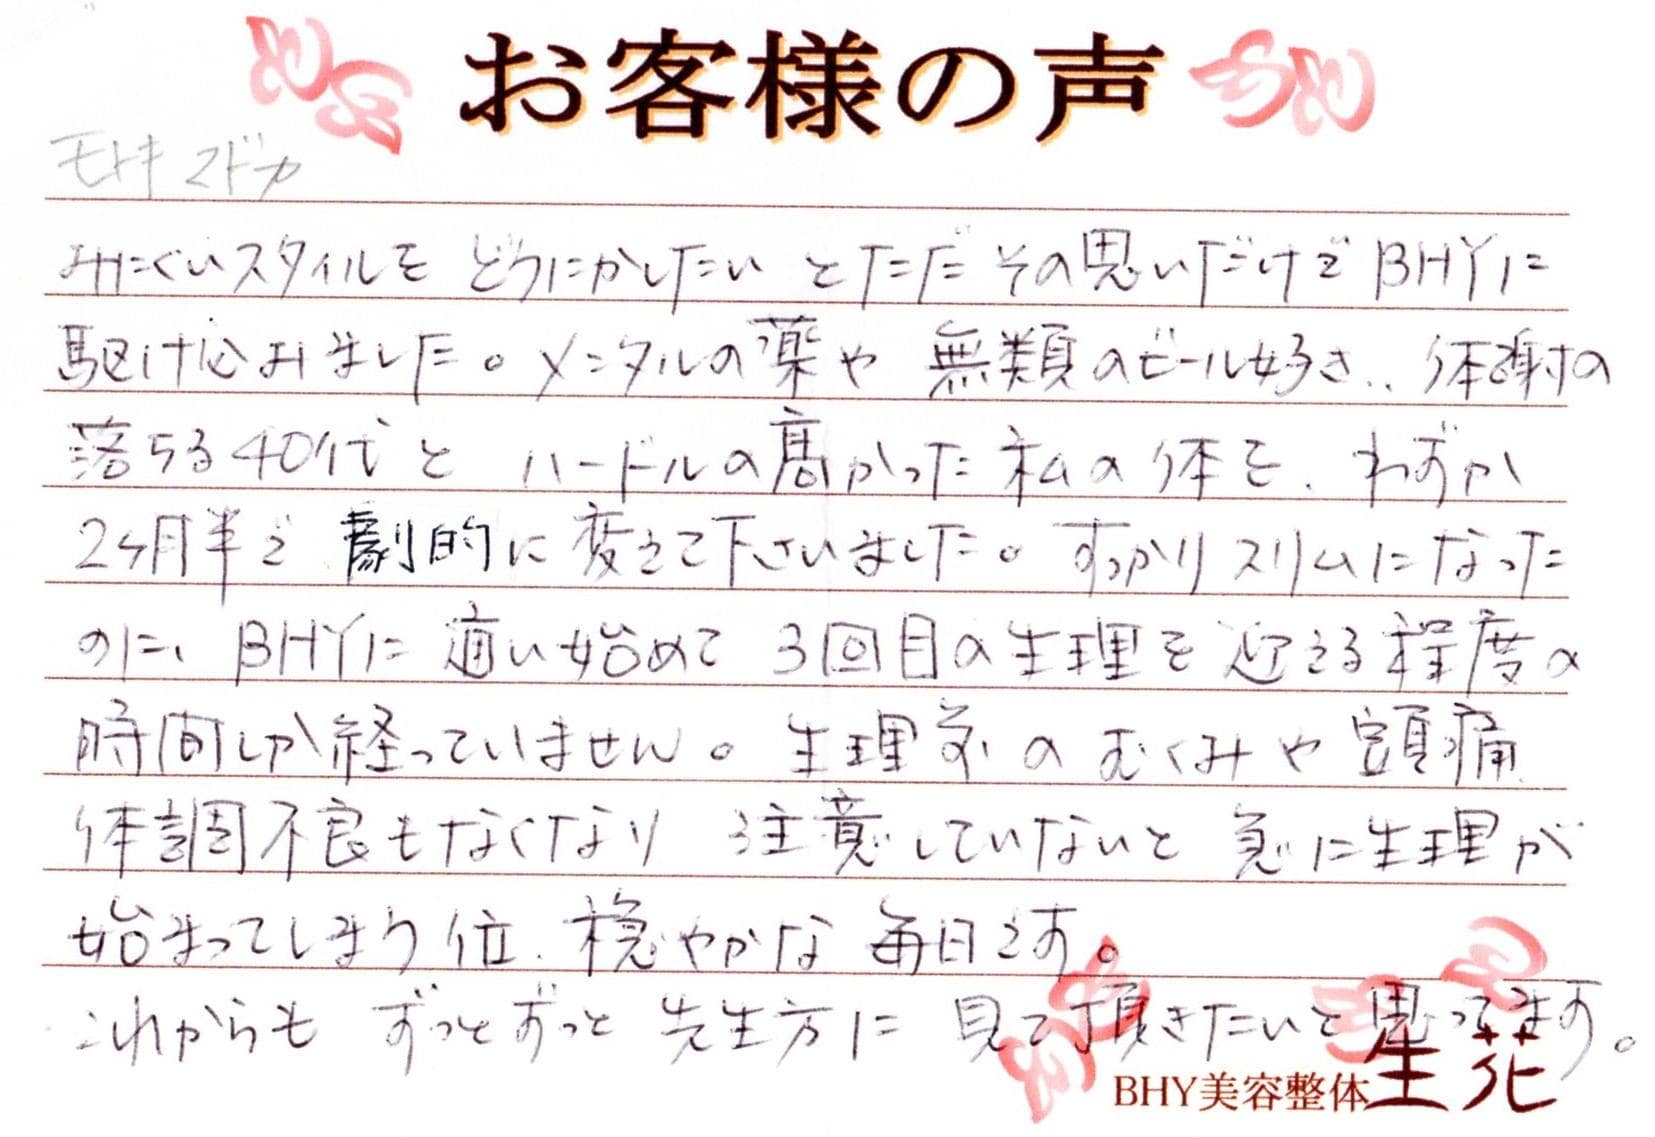 お客様の声
モトキ マドカ
みにくいスタイルを どうにかしたい とただ その思いだけで BHYに
駆け込みました。メンタルの薬や 無類のビール好き、体謝の
落ちる40代と ハードルの高かった私の体を、わずか
2ヶ月半で 劇的に変えて下さいました。すっかりスリムになった
のに、BHYに 通い始めて 3回目の生理を迎える程度の
時間しか経っていません。生理前の むくみや頭痛
体調不良もなくなり 注意していないと 急に生理が
始まってしまう位、穏やかな 毎日です。
これからも ずっとずっと 先生方に 見て頂きたいと思ってます。
BHY美容整体 生花